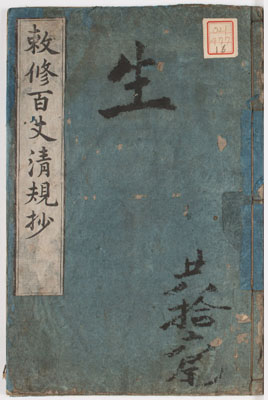 敕修百丈清規抄
生
共拾